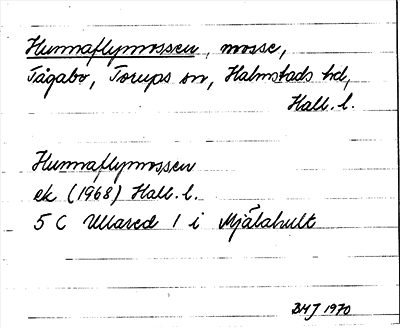 Hunnaflymossen, mosse,
Tågabo, Torups sn, Halmstads hd,
Hall. l.
Hunnaflymossen
ek (1968) Hall. l.
5 C Ullared 1 i Mjälahult
BHJ 1970